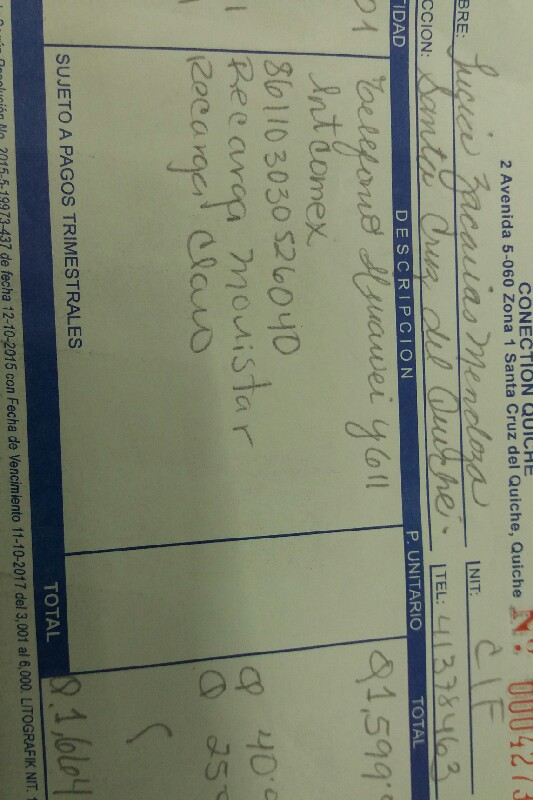 CONECTION QUICHE
2 Avenida 5-060 Zona 1 Santa Cruz del Quiche, Quiche
N. 0004273
BRE: Lucia Zacarias Mendoza NIT: C/F
CCION: Santa Cruz del Quiche. TEL: 41378463
TIDAD DESCRIPCION P. UNITARIO TOTAL
01 Telefono Huawei y611 Q1,599.
Intcomex
861103030526040
1 Recarga Movistar Q 40.
1 Recarga Claro Q 25
SUJETO A PAGOS TRIMESTRALES TOTAL Q.1,664
Resolución No. 2015-5-19973-437 de fecha 12-10-2015 con Fecha de Vencimiento 11-10-2017 del 3,001 al 6,000. LITOGRAFIK NIT.